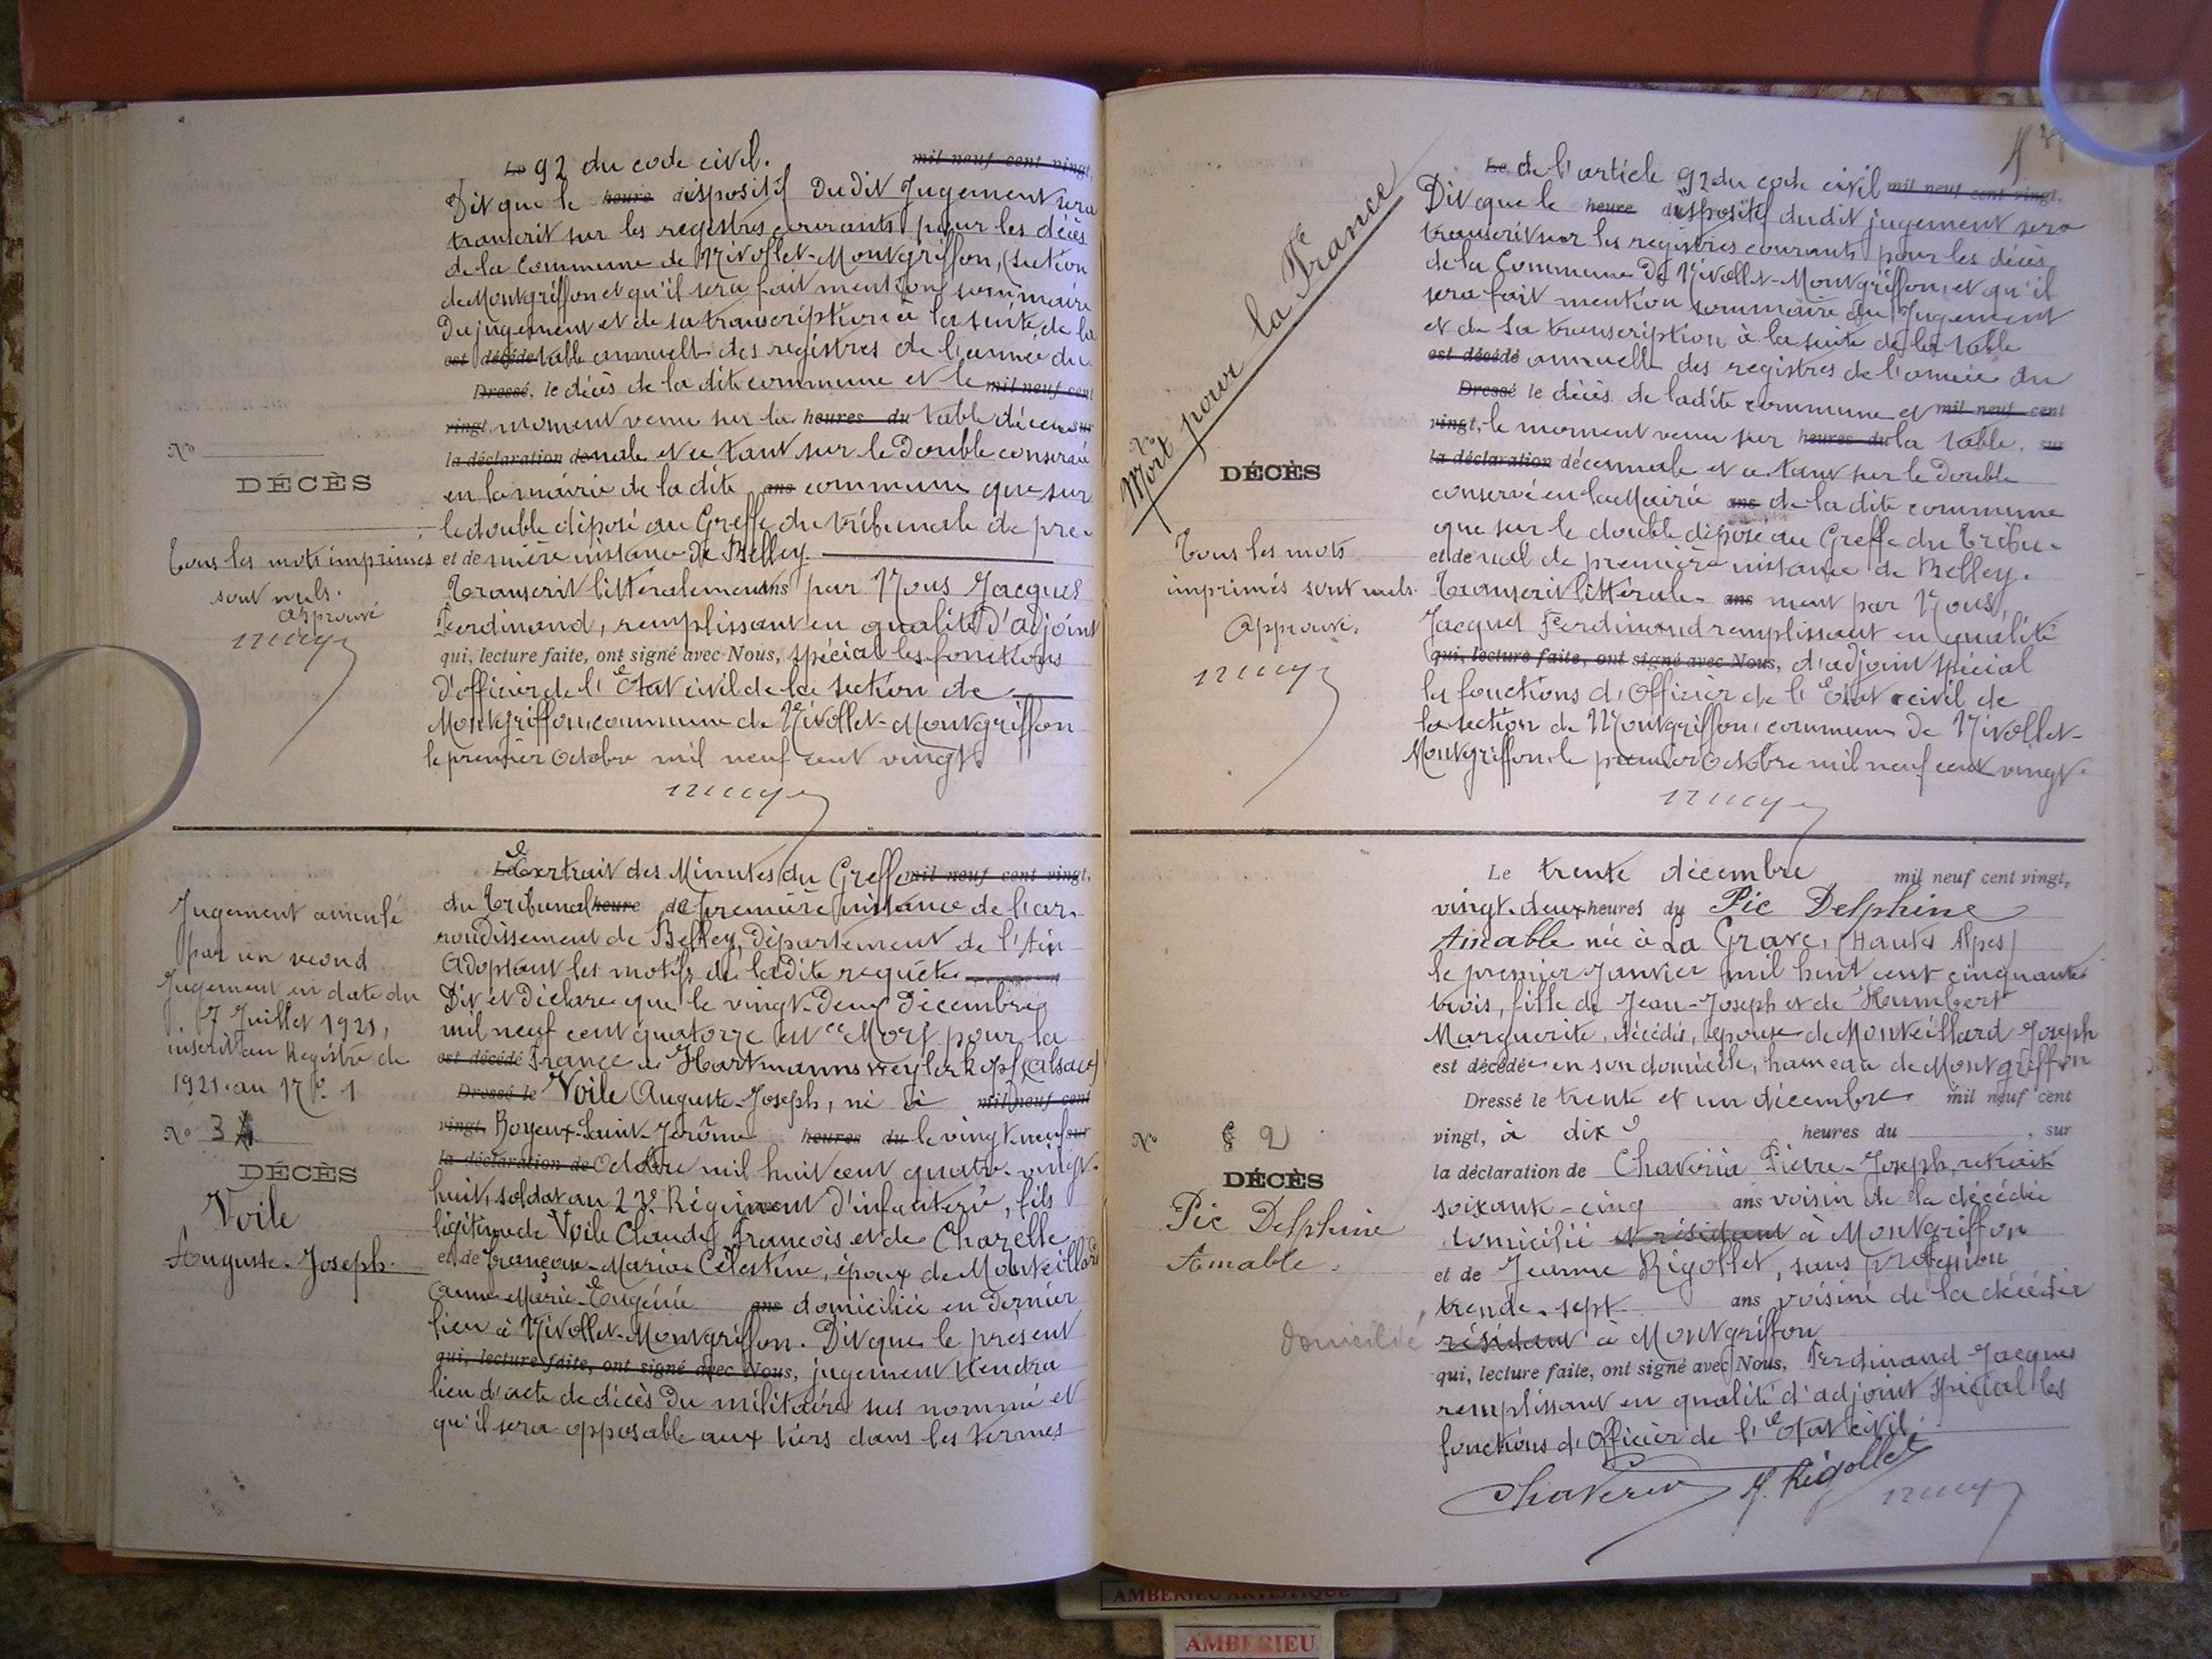 Le 92 du code civil. mil neuf cent vingt,
Dit que le heure dispositif dudit Jugement sera
transcrit sur les registres courants pour les décès
de la Commune de Nivollet-Montgriffon, (section
de Montgriffon et qu'il sera fait mention sommaire
du jugement et de sa transcription à la suite de la
est décédé table annuelle des registres de l'année du
Dressé, le décès de la dite commune et le mil neuf cent
vingt, moment venu sur la heures du table décen sur
la déclaration de nale et ce tant sur le double conservé
en la mairie de la dite ans commune que sur
le double déposé au Greffe du tribunal de pre-
et de mière instance de Belley.
Transcrit littéralement ans par Nous Jacques
Ferdinand, remplissant en qualité d'adjoint
qui, lecture faite, ont signé avec Nous, spécial les fonctions
d'officier de l'Etat civil de la section de
Montgriffon, commune de Nivollet-Montgriffon
le premier Octobre mil neuf cent vingt.
No
DÉCÈS
Tous les mots imprimés
sont nuls.
approuvé
Le Extrait des Minutes du Greffe mil neuf cent vingt,
du Tribunal heure de première instance de l'ar-
rondissement de Belley, Département de l'Ain
Adoptant les motifs de ladite requête
Dit et Déclare que le vingt-deux Décembre
mil neuf cent quatorze est "Mort pour la
est décédé France à Hartmannsweylerkopf (Alsace)
Dressé le Voile (Auguste-Joseph, né à mil neuf cent
vingt, Boyeux-Saint-Jérôme heures du le vingt neuf sur
la déclaration de Octobre mil huit cent quatre-vingt-
huit, soldat au 23e Régiment d'infanterie, fils
légitime de Voile Claude François et de Chazelle
et de Françoise-Marie Célestine, époux de Monteillard
Anne-Marie-Eugénie ans domiciliée en dernier
lieu à Nivollet-Montgriffon. Dit que le présent
qui, lecture faite, ont signé avec Nous, jugement tiendra
lieu d'acte de décès du militaire sus nommé et
qu'il sera opposable aux tiers dans les termes
Jugement annulé
par un second
Jugement en date du
7 Juillet 1921,
inscrit au Registre de
1921 au No. 1
No 3
DÉCÈS
Voile
Auguste-Joseph.
Le de l'article 92 du code civil mil neuf cent vingt,
Dit que le heure dispositif dudit jugement sera
transcrit sur les registres courants pour les décès
de la Commune de Nivollet-Montgriffon, et qu'il
sera fait mention sommaire du Jugement
et de sa transcription à la suite de la table
est décédé annuelle des registres de l'année du
Dressé le décès de ladite commune et mil neuf cent
vingt, le moment venu sur heures du la table. sur
la déclaration décennale et ce tant sur le double
conservé en la Mairie ans de la dite commune
que sur le double déposé au Greffe du tribu-
et de nal de première instance de Belley.
Transcrit littérale- ans ment par Nous,
Jacques Ferdinand remplissant en qualité
qui, lecture faite, ont signé avec Nous, d'adjoint spécial
les fonctions d'Officier de l'Etat civil de
la section de Montgriffon, commune de Nivollet-
Montgriffon le premier Octobre mil neuf cent vingt.
Mort pour la France
No
DÉCÈS
Tous les mots
imprimés sont nuls.
Approuvé,
Le trente décembre mil neuf cent vingt,
vingt-deux heures du Pic Delphine
Aimable née à La Grave, (Hautes Alpes)
le premier Janvier mil huit cent cinquante
trois, fille de Jean-Joseph et de Humbert
Marguerite, décédés, épouse de Monteillard Joseph
est décédée en son domicile, hameau de Montgriffon
Dressé le trente et un décembre mil neuf cent
vingt, à dix heures du , sur
la déclaration de Chaverin Pierre-Joseph, retraité
soixante-cinq ans voisin de la décédée
domicilié et résidant à Montgriffon
et de Jeanne Rigollet, sans profession
trende-sept ans voisine de la décédée
résidant à Montgriffon
qui, lecture faite, ont signé avec Nous, Ferdinand Jacques
remplissant en qualité d'adjoint spécial les
fonctions d'Officier de l'Etat civil.
Chaverin J. Rigollet
No 2
DÉCÈS
Pic Delphine
Aimable.
domicilié
AMBERIEU ARTISTIQUE
AMBERIEU